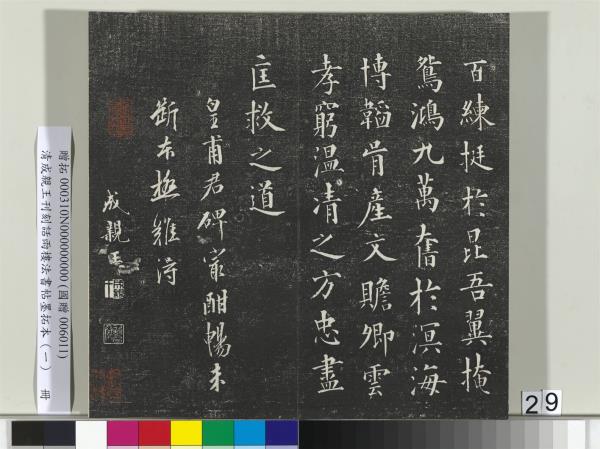 百練挺於昆吾翼掩
鴛鴻九萬奮於溟海
博韜胄產文贍卿雲
孝窮溫凊之方忠盡
匡救之道
皇甫君碑最酣暢未
斷本極難得
成親王
贈拓 000310N000000000 (國贈 006011)
清成親王刊刻話雨樓法書帖墨拓本（一） 冊
29